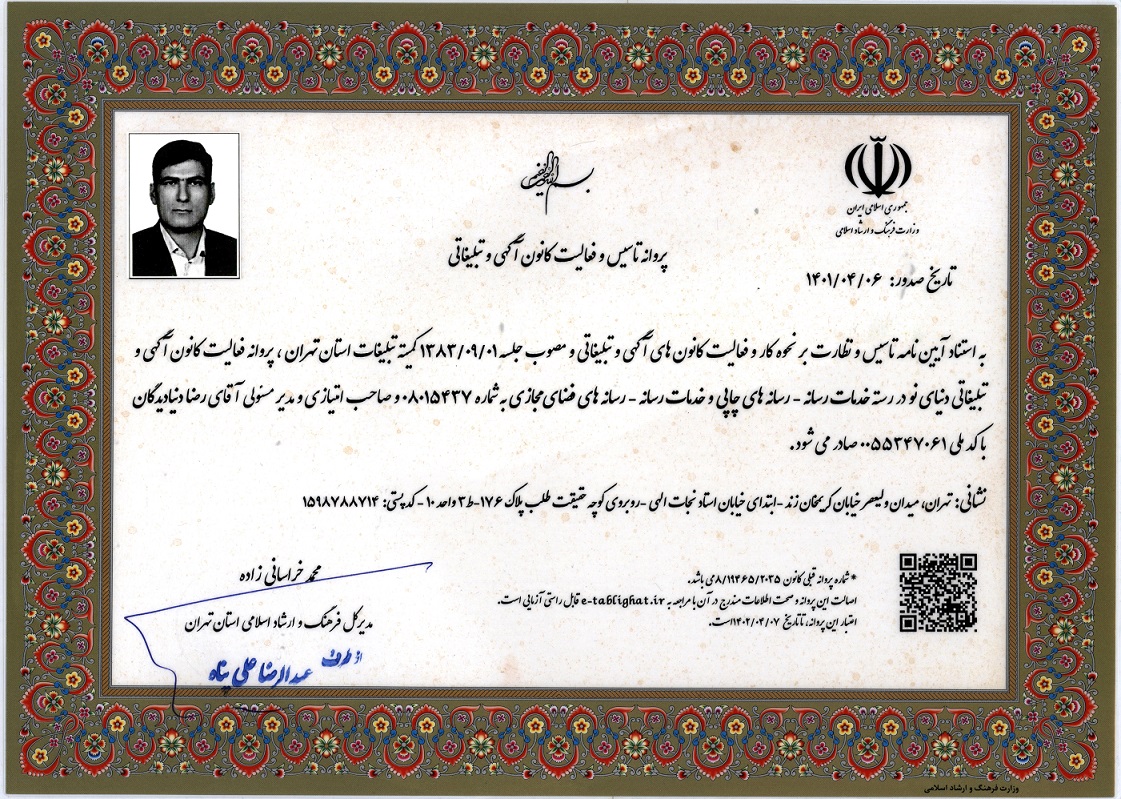 بسم الله الرحمن الرحیم
جمهوری اسلامی ایران
وزارت فرهنگ و ارشاد اسلامی
پروانه تاسیس و فعالیت کانون آگهی و تبلیغاتی
تاریخ صدور: ۱۴۰۱/۰۴/۰۶
به استناد آیین نامه تاسیس و نظارت بر نحوه کار و فعالیت کانون های آگهی و تبلیغاتی و مصوب جلسه ۱۳۸۳/۰۹/۰۱ کمیته تبلیغات استان تهران ، پروانه فعالیت کانون آگهی و
تبلیغاتی دنیای نو در رسته خدمات رسانه - رسانه های چاپی و خدمات رسانه - رسانه های فضای مجازی به شماره ۰۸۰۱۵۴۳۷ و صاحب امتیازی و مدیر مسئولی آقای رضا دنیادیدگان
با کد ملی ۰۰۵۵۳۴۷۰۶۱ صادر می شود.
نشانی: تهران، میدان ولیعصر خیابان کریمخان زند -ابتدای خیابان استاد نجات الهی -روبروی کوچه حقیقت طلب پلاک ۱۷۶-ط ۳ واحد ۱۰ - کد پستی: ۱۵۹۸۷۸۸۷۱۴
* شماره پروانه قبلی کانون ۸/۱۹۴۶۵/۲۰۳۵می باشد.
اصالت این پروانه و صحت اطلاعات مندرج در آن با مراجعه به e-tablighat.ir قابل راستی آزمایی است.
اعتبار این پروانه، تا تاریخ ۱۴۰۲/۰۴/۰۷است.
محمد خراسانی زاده
مدیرکل فرهنگ و ارشاد اسلامی استان تهران
از طرف
عبدالرضا علی پناه
وزارت فرهنگ و ارشاد اسلامی